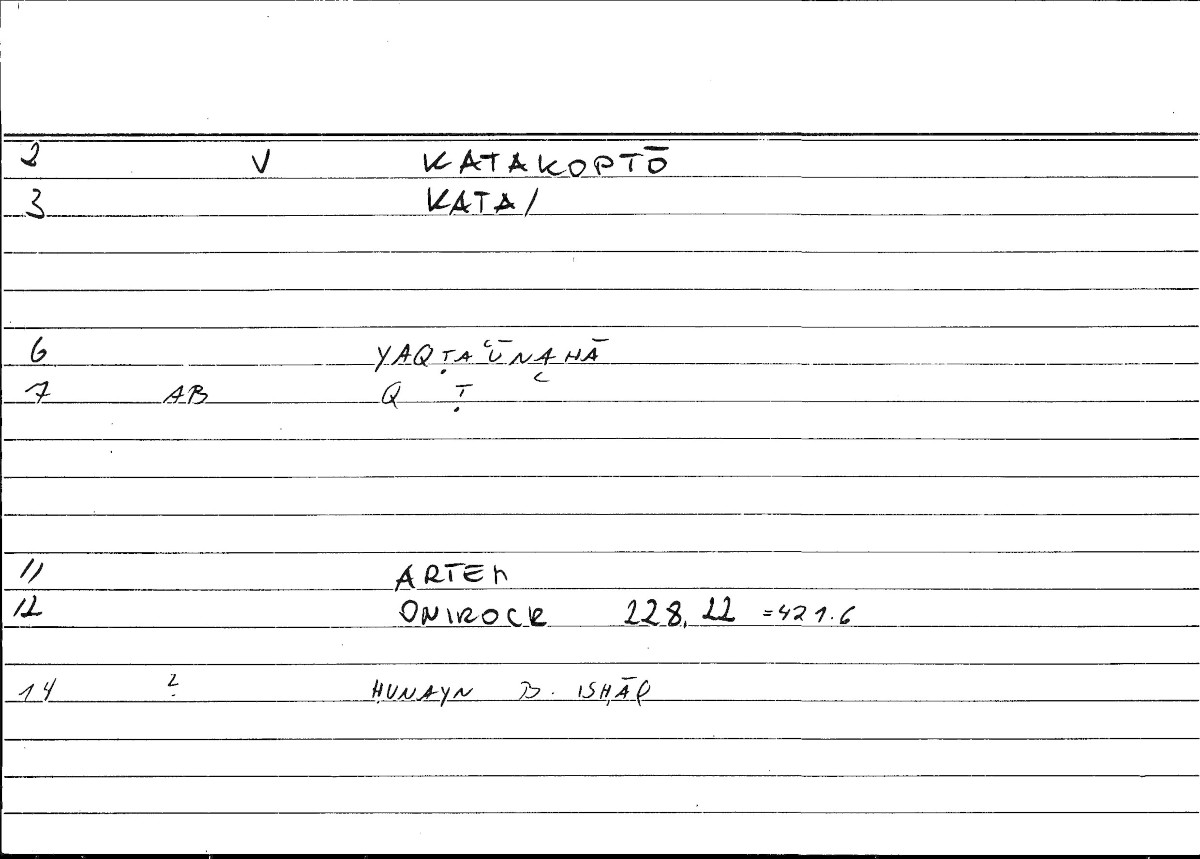 2 V KATAKOPTŌ
3 KATA/
6 YAQṬAʿŪNAHĀ
7 AB Q Ṭ ʿ
11 ARTEM
12 ONIROCR 228,22 =421.6
14 ḤUNAYN B. ISḤĀQ